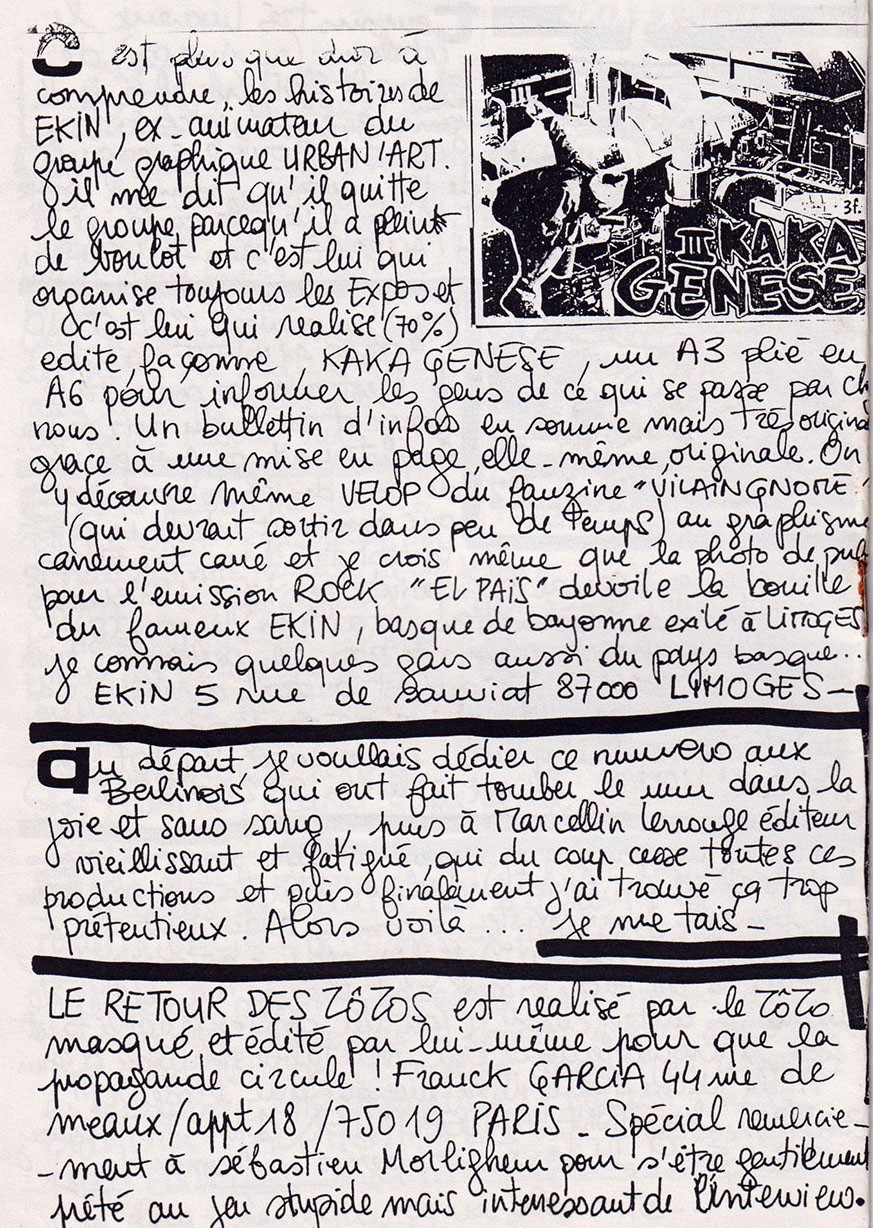 C est plus que dur à
comprendre, les histoires de
EKIN, ex-animateur du
groupe graphique URBAN'ART.
il me dit qu'il quitte
le groupe parcequ'il a plein
de boulot et c'est lui qui
organise toujours les Expos et
c'est lui qui realise (70%)
edite, façonne, KAKA GENESE, un A3 plié en
3f.
III KAKA
GENESE
A6 pour informer les gens de ce qui se passe par ch
nous. Un bulletin d'infos en somme mais trés origina
grace à une mise en page, elle-même, originale. On
y découvre même VELOP du fanzine "VILAIN GNOME"
(qui devrait sortir dans peu de temps) au graphisme
carrément carré et je crois même que la photo de pub
pour l'emission ROCK "EL PAIS" devoile la bouille
du fameux EKIN, basque de bayonne exilé à LIMOGES
je connais quelques gars aussi du pays basque...
EKIN 5 rue de sauviat 87000 LIMOGES-
au départ, je voullais dédier ce numero aux
Berlinois qui ont fait tomber le mur dans la
joie et sans sang, puis à Marcellin Lerouge éditeur
vieillissant et fatigué, qui du coup cesse toutes ces
productions et puis finalement j'ai trouvé ça trop
prétentieux. Alors voilà ... je me tais-
LE RETOUR DES ZÔZOS est realisé par le ZôZo
masqué, et édité par lui-même pour que la
propagande circule ! Franck GARCIA 44 rue de
meaux/appt 18 /75019 PARIS - Spécial remercie-
-ment à sébastien Morlighem pour s'être gentilement
prété au jeu stupide mais interressant de l'interview.